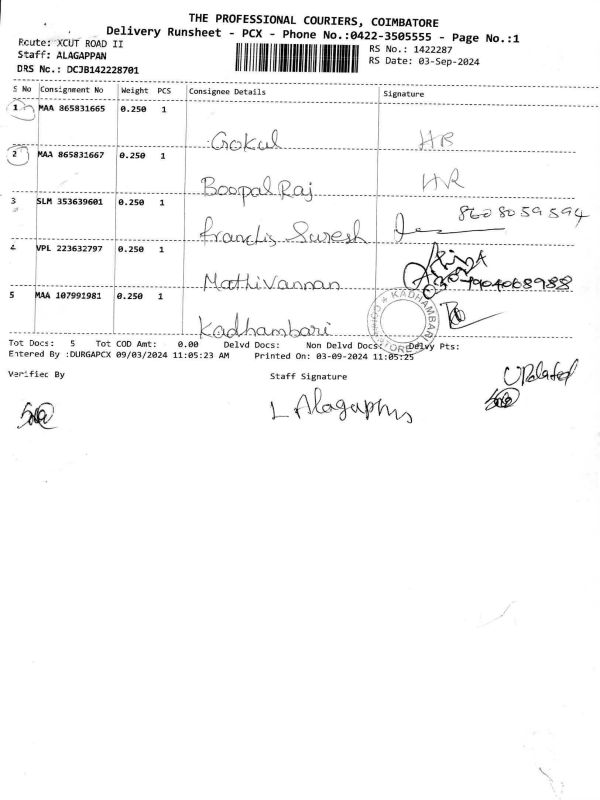 THE PROFESSIONAL COURIERS, COIMBATORE
Delivery Runsheet - PCX - Phone No.:0422-3505555 - Page No.:1
Route: XCUT ROAD II
RS No.: 1422287
Staff: ALAGAPPAN
RS Date: 03-Sep-2024
DRS No.: DCJB142228701
S No Consignment No Weight PCS Consignee Details Signature
1 MAA 865831665 0.250 1
Gokul HR
2 MAA 865831667 0.250 1
Boopal Raj HR
3 SLM 353639601 0.250 1
Francis Suresh 8608059594
4 VPL 223632797 0.250 1
Mathivannan 9904068988
5 MAA 107991981 0.250 1
Kadhambari KADHAMBARI
Tot Docs: 5 Tot COD Amt: 0.00 Delvd Docs: Non Delvd Docs: Delvy Pts:
Entered By :DURGAPCX 09/03/2024 11:05:23 AM Printed On: 03-09-2024 11:05:25
Verified By Staff Signature
L Alagappan